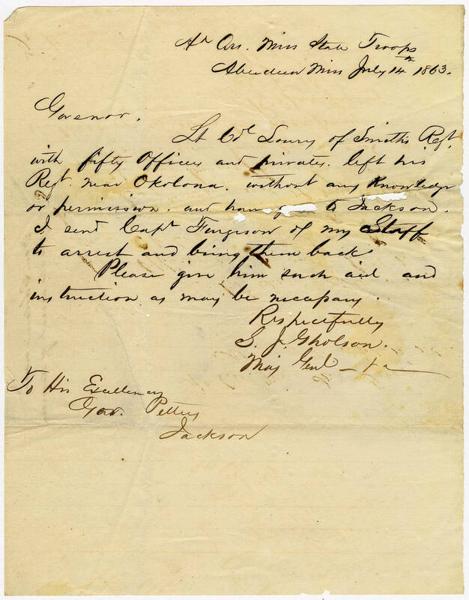 Hd Qrs. Miss State Troops
Aberdeen Miss July 14th 1863.
Governor.
Lt Col Lowry of Smiths Regt.
with fifty Officers and privates. left his
Regt. near Okolona. without any Knowledge
or permission. and have to Jackson.
I sent Capt Ferguson of my Staff
to arrest and bring them back
Please give him such aid and
instruction as may be necessary.
Respectfully
S. J. Gholson.
Maj Genl
To His Excellency
Gov. Pettus
Jackson